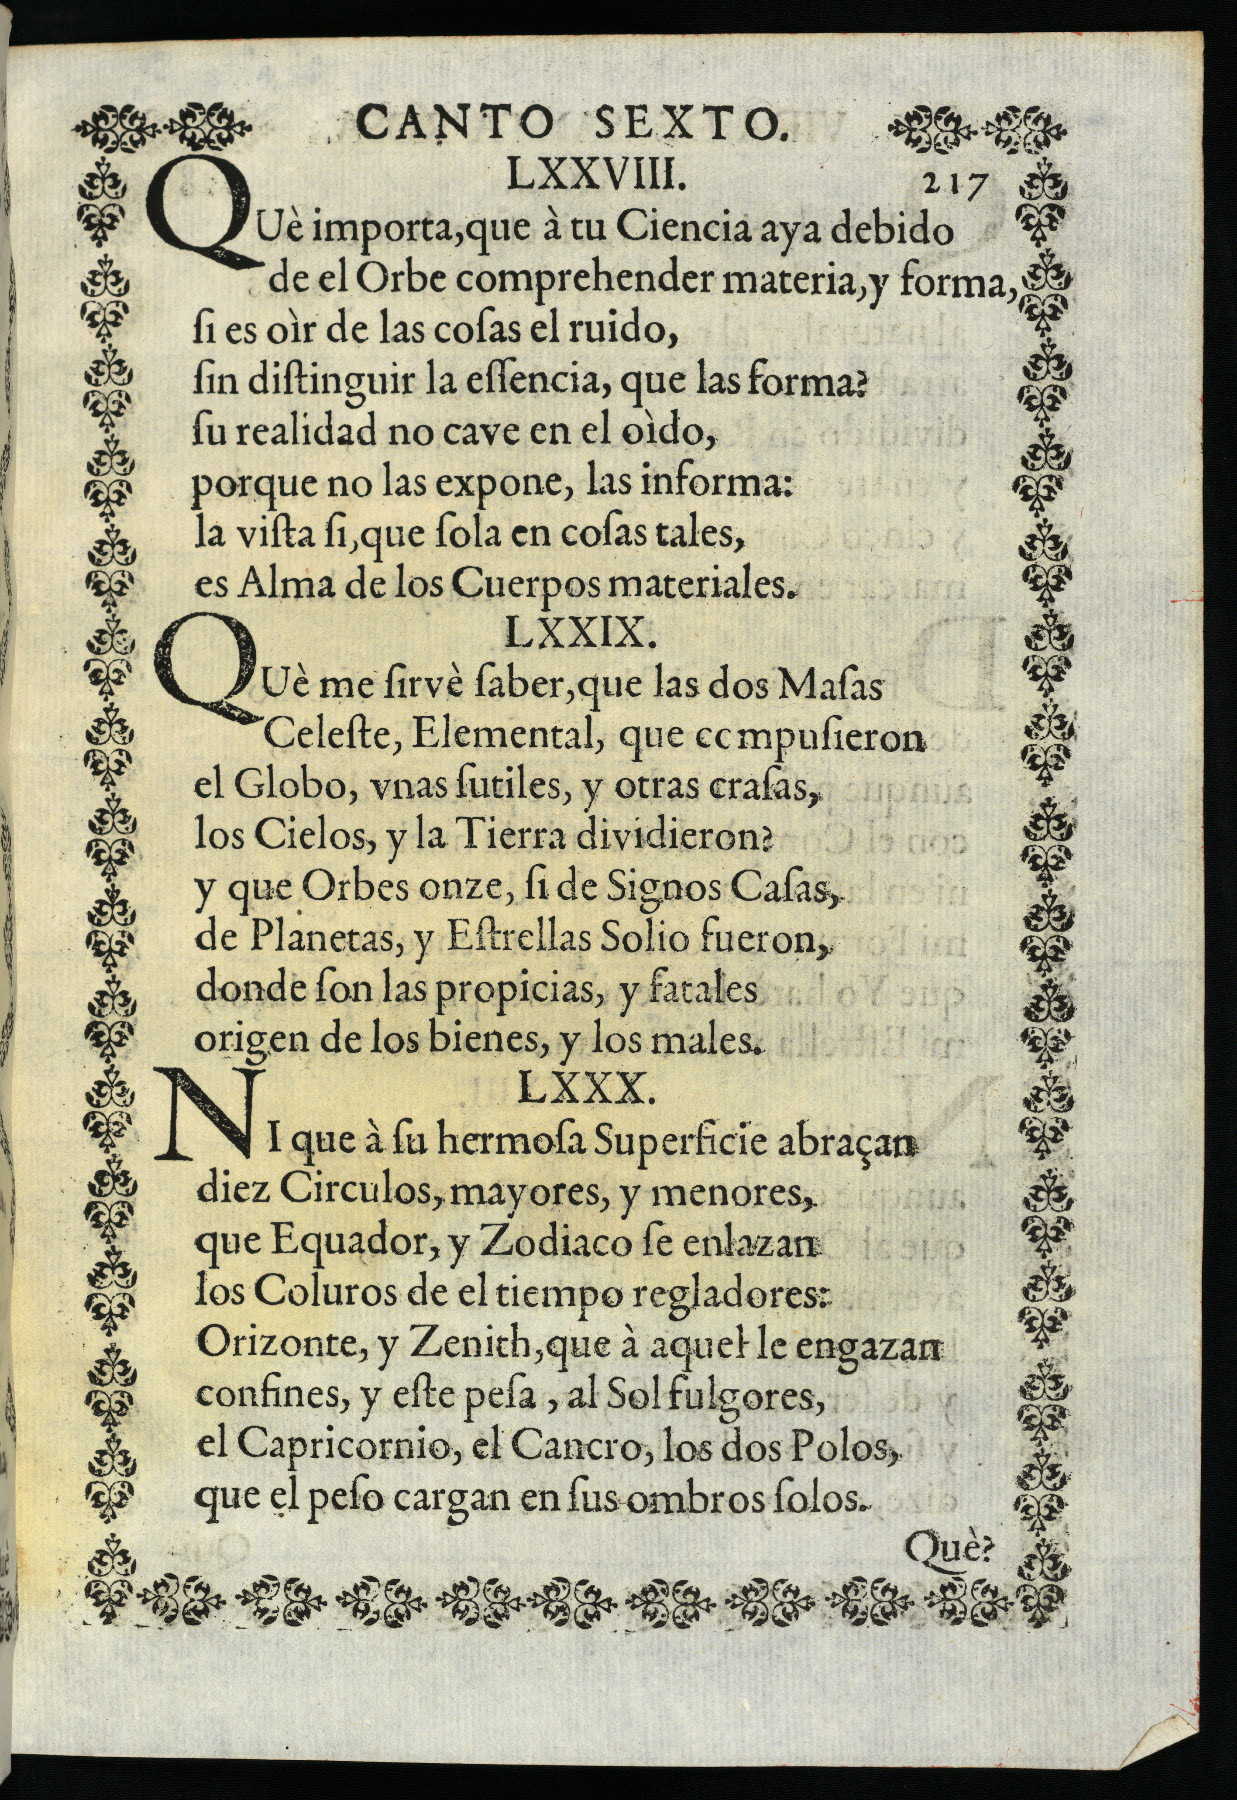 CANTO SEXTO.
LXXVIII.
217
QUè importa,que à tu Ciencia aya debido
de el Orbe comprehender materia,y forma,
ſi es oìr de las coſas el ruido,
ſin diſtinguir la eſſencia, que las forma?
ſu realidad no cave en el oìdo,
porque no las expone, las informa:
la viſta ſi,que ſola en coſas tales,
es Alma de los Cuerpos materiales.
LXXIX.
QUè me ſirvè ſaber,que las dos Maſas
Celeſte, Elemental, que compuſieron
el Globo, vnas ſutiles, y otras craſas,
los Cielos, y la Tierra dividieron?
y que Orbes onze, ſi de Signos Caſas,
de Planetas, y Eſtrellas Solio fueron,
donde ſon las propicias, y fatales
origen de los bienes, y los males.
LXXX.
NI que à ſu hermoſa Superficie abraçan
diez Circulos, mayores, y menores,
que Equador, y Zodiaco ſe enlazan
los Coluros de el tiempo regladores:
Orizonte, y Zenith,que à aquel le engazan
confines, y eſte peſa , al Sol fulgores,
el Capricornio, el Cancro, los dos Polos,
que el peſo cargan en ſus ombros ſolos.
Què?